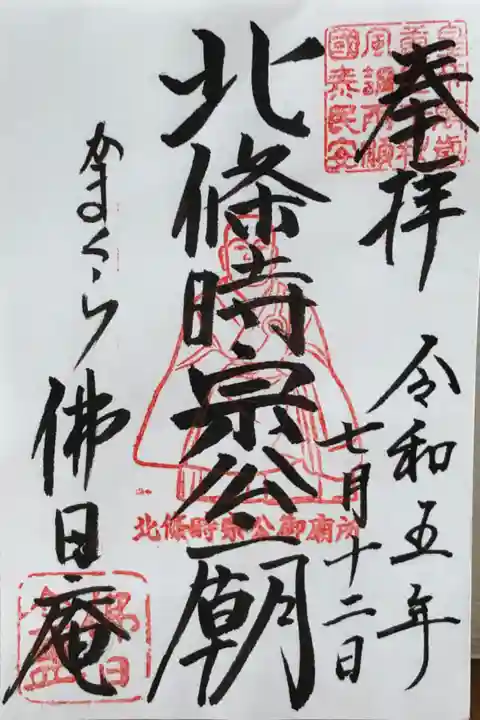 奉拝
風調雨順
國泰民安
令和五年
七月十二日
北條時宗公廟
北條時宗公御廟所
かまくら
佛日庵